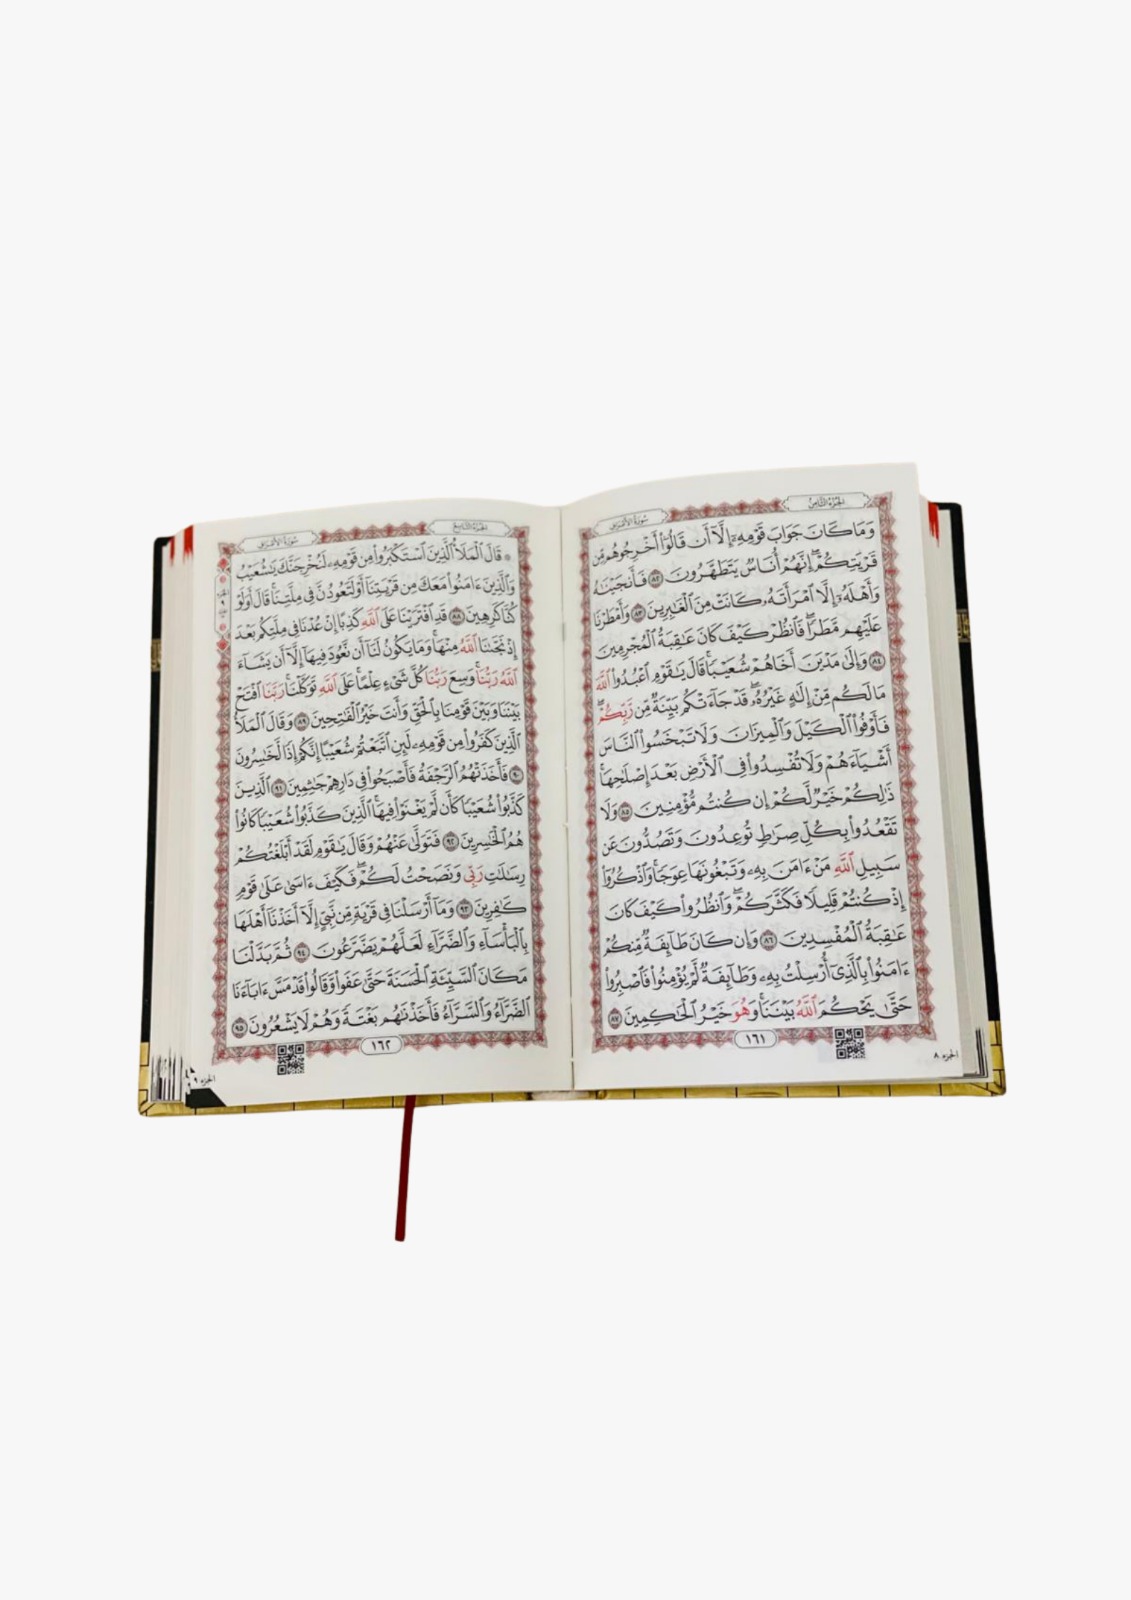 الجزء الثامن
سورة الأعراف
وَمَا كَانَ جَوَابَ قَوْمِهِۦٓ إِلَّآ أَن قَالُوٓا۟ أَخْرِجُوهُم مِّن
قَرْيَتِكُمْ ۖ إِنَّهُمْ أُنَاسٌ يَتَطَهَّرُونَ ٨٢ فَأَنجَيْنَٰهُ
وَأَهْلَهُۥٓ إِلَّا ٱمْرَأَتَهُۥ كَانَتْ مِنَ ٱلْغَٰبِرِينَ ٨٣ وَأَمْطَرْنَا
عَلَيْهِم مَّطَرًا ۖ فَٱنظُرْ كَيْفَ كَانَ عَٰقِبَةُ ٱلْمُجْرِمِينَ
٨٤ وَإِلَىٰ مَدْيَنَ أَخَاهُمْ شُعَيْبًا ۗ قَالَ يَٰقَوْمِ ٱعْبُدُوا۟ ٱللَّهَ
مَا لَكُم مِّنْ إِلَٰهٍ غَيْرُهُۥ ۖ قَدْ جَآءَتْكُم بَيِّنَةٌ مِّن رَّبِّكُمْ ۖ
فَأَوْفُوا۟ ٱلْكَيْلَ وَٱلْمِيزَانَ وَلَا تَبْخَسُوا۟ ٱلنَّاسَ
أَشْيَآءَهُمْ وَلَا تُفْسِدُوا۟ فِى ٱلْأَرْضِ بَعْدَ إِصْلَٰحِهَا ۚ
ذَٰلِكُمْ خَيْرٌ لَّكُمْ إِن كُنتُم مُّؤْمِنِينَ ٨٥ وَلَا
تَقْعُدُوا۟ بِكُلِّ صِرَٰطٍ تُوعِدُونَ وَتَصُدُّونَ عَن
سَبِيلِ ٱللَّهِ مَنْ ءَامَنَ بِهِۦ وَتَبْغُونَهَا عِوَجًا ۚ وَٱذْكُرُوٓا۟
إِذْ كُنتُمْ قَلِيلًا فَكَثَّرَكُمْ ۖ وَٱنظُرُوا۟ كَيْفَ كَانَ
عَٰقِبَةُ ٱلْمُفْسِدِينَ ٨٦ وَإِن كَانَ طَآئِفَةٌ مِّنكُمْ
ءَامَنُوا۟ بِٱلَّذِىٓ أُرْسِلْتُ بِهِۦ وَطَآئِفَةٌ لَّمْ يُؤْمِنُوا۟ فَٱصْبِرُوا۟
حَتَّىٰ يَحْكُمَ ٱللَّهُ بَيْنَنَا ۚ وَهُوَ خَيْرُ ٱلْحَٰكِمِينَ ٨٧
١٦١
الجزء ٨
الجزء التاسع
سورة الأعراف
۞ قَالَ ٱلْمَلَأُ ٱلَّذِينَ ٱسْتَكْبَرُوا۟ مِن قَوْمِهِۦ لَنُخْرِجَنَّكَ يَٰشُعَيْبُ
وَٱلَّذِينَ ءَامَنُوا۟ مَعَكَ مِن قَرْيَتِنَآ أَوْ لَتَعُودُنَّ فِى مِلَّتِنَا ۚ قَالَ أَوَلَوْ
كُنَّا كَٰرِهِينَ ٨٨ قَدِ ٱفْتَرَيْنَا عَلَى ٱللَّهِ كَذِبًا إِنْ عُدْنَا فِى مِلَّتِكُم بَعْدَ
إِذْ نَجَّىٰنَا ٱللَّهُ مِنْهَا ۚ وَمَا يَكُونُ لَنَآ أَن نَّعُودَ فِيهَآ إِلَّآ أَن يَشَآءَ
ٱللَّهُ رَبُّنَا ۚ وَسِعَ رَبُّنَا كُلَّ شَىْءٍ عِلْمًا ۚ عَلَى ٱللَّهِ تَوَكَّلْنَا ۚ رَبَّنَا ٱفْتَحْ
بَيْنَنَا وَبَيْنَ قَوْمِنَا بِٱلْحَقِّ وَأَنتَ خَيْرُ ٱلْفَٰتِحِينَ ٨٩ وَقَالَ ٱلْمَلَأُ
ٱلَّذِينَ كَفَرُوا۟ مِن قَوْمِهِۦ لَئِنِ ٱتَّبَعْتُمْ شُعَيْبًا إِنَّكُمْ إِذًا لَّخَٰسِرُونَ
٩٠ فَأَخَذَتْهُمُ ٱلرَّجْفَةُ فَأَصْبَحُوا۟ فِى دَارِهِمْ جَٰثِمِينَ ٩١ ٱلَّذِينَ
كَذَّبُوا۟ شُعَيْبًا كَأَن لَّمْ يَغْنَوْا۟ فِيهَا ۚ ٱلَّذِينَ كَذَّبُوا۟ شُعَيْبًا كَانُوا۟
هُمُ ٱلْخَٰسِرِينَ ٩٢ فَتَوَلَّىٰ عَنْهُمْ وَقَالَ يَٰقَوْمِ لَقَدْ أَبْلَغْتُكُمْ
رِسَٰلَٰتِ رَبِّى وَنَصَحْتُ لَكُمْ ۖ فَكَيْفَ ءَاسَىٰ عَلَىٰ قَوْمٍ
كَٰفِرِينَ ٩٣ وَمَآ أَرْسَلْنَا فِى قَرْيَةٍ مِّن نَّبِىٍّ إِلَّآ أَخَذْنَآ أَهْلَهَا
بِٱلْبَأْسَآءِ وَٱلضَّرَّآءِ لَعَلَّهُمْ يَضَّرَّعُونَ ٩٤ ثُمَّ بَدَّلْنَا
مَكَانَ ٱلسَّيِّئَةِ ٱلْحَسَنَةَ حَتَّىٰ عَفَوا۟ وَّقَالُوا۟ قَدْ مَسَّ ءَابَآءَنَا
ٱلضَّرَّآءُ وَٱلسَّرَّآءُ فَأَخَذْنَٰهُم بَغْتَةً وَهُمْ لَا يَشْعُرُونَ ٩٥
١٦٢
الجزء ٩